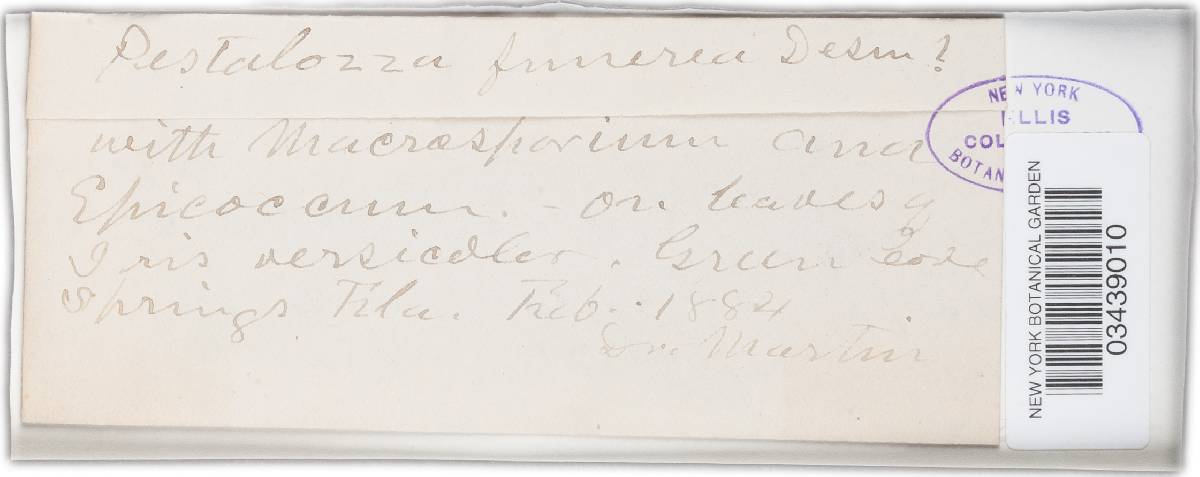 Pestalozza funerea Desm?
with Macrosporium and
Epicoccum. - on leaves of
Iris versicolor. Green Cove
Springs Fla. Feb. 1884
Dr. Martin
NEW YORK
ELLIS
COL
BOTAN
NEW YORK BOTANICAL GARDEN
03439010